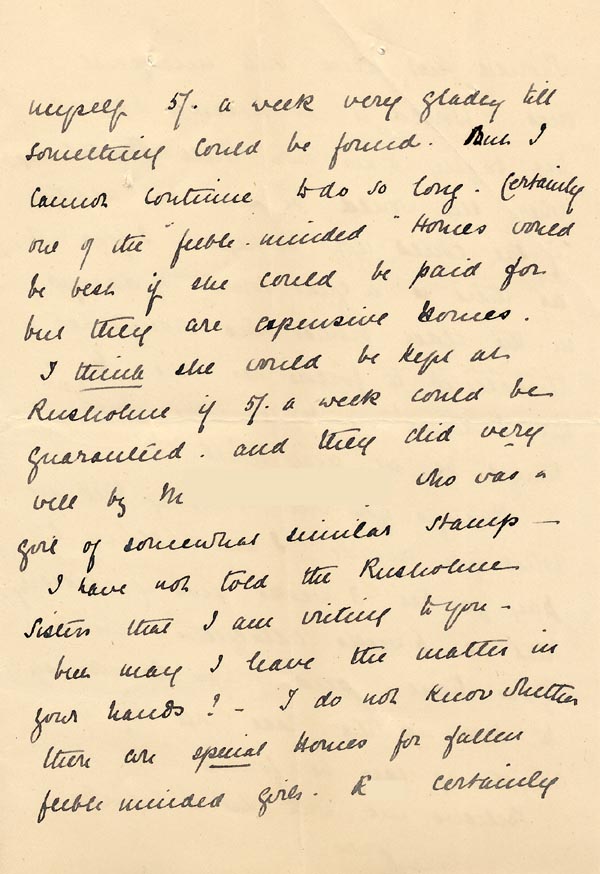 myself 5/- a week very gladly till
something could be found. But I
cannot continue to do so long. Certainly
one of the "feeble-minded" Homes would
be best if she could be paid for
but they are expensive Homes.
I think she would be kept at
Rusholme if 5/- a week could be
guaranteed. and they did very
well by M who was a
girl of somewhat similar stamp —
I have not told the Rusholme
Sisters that I am writing to you -
but may I leave the matter in
your hands? - I do not know whether
there are special Homes for fallen
feeble minded girls. K certainly